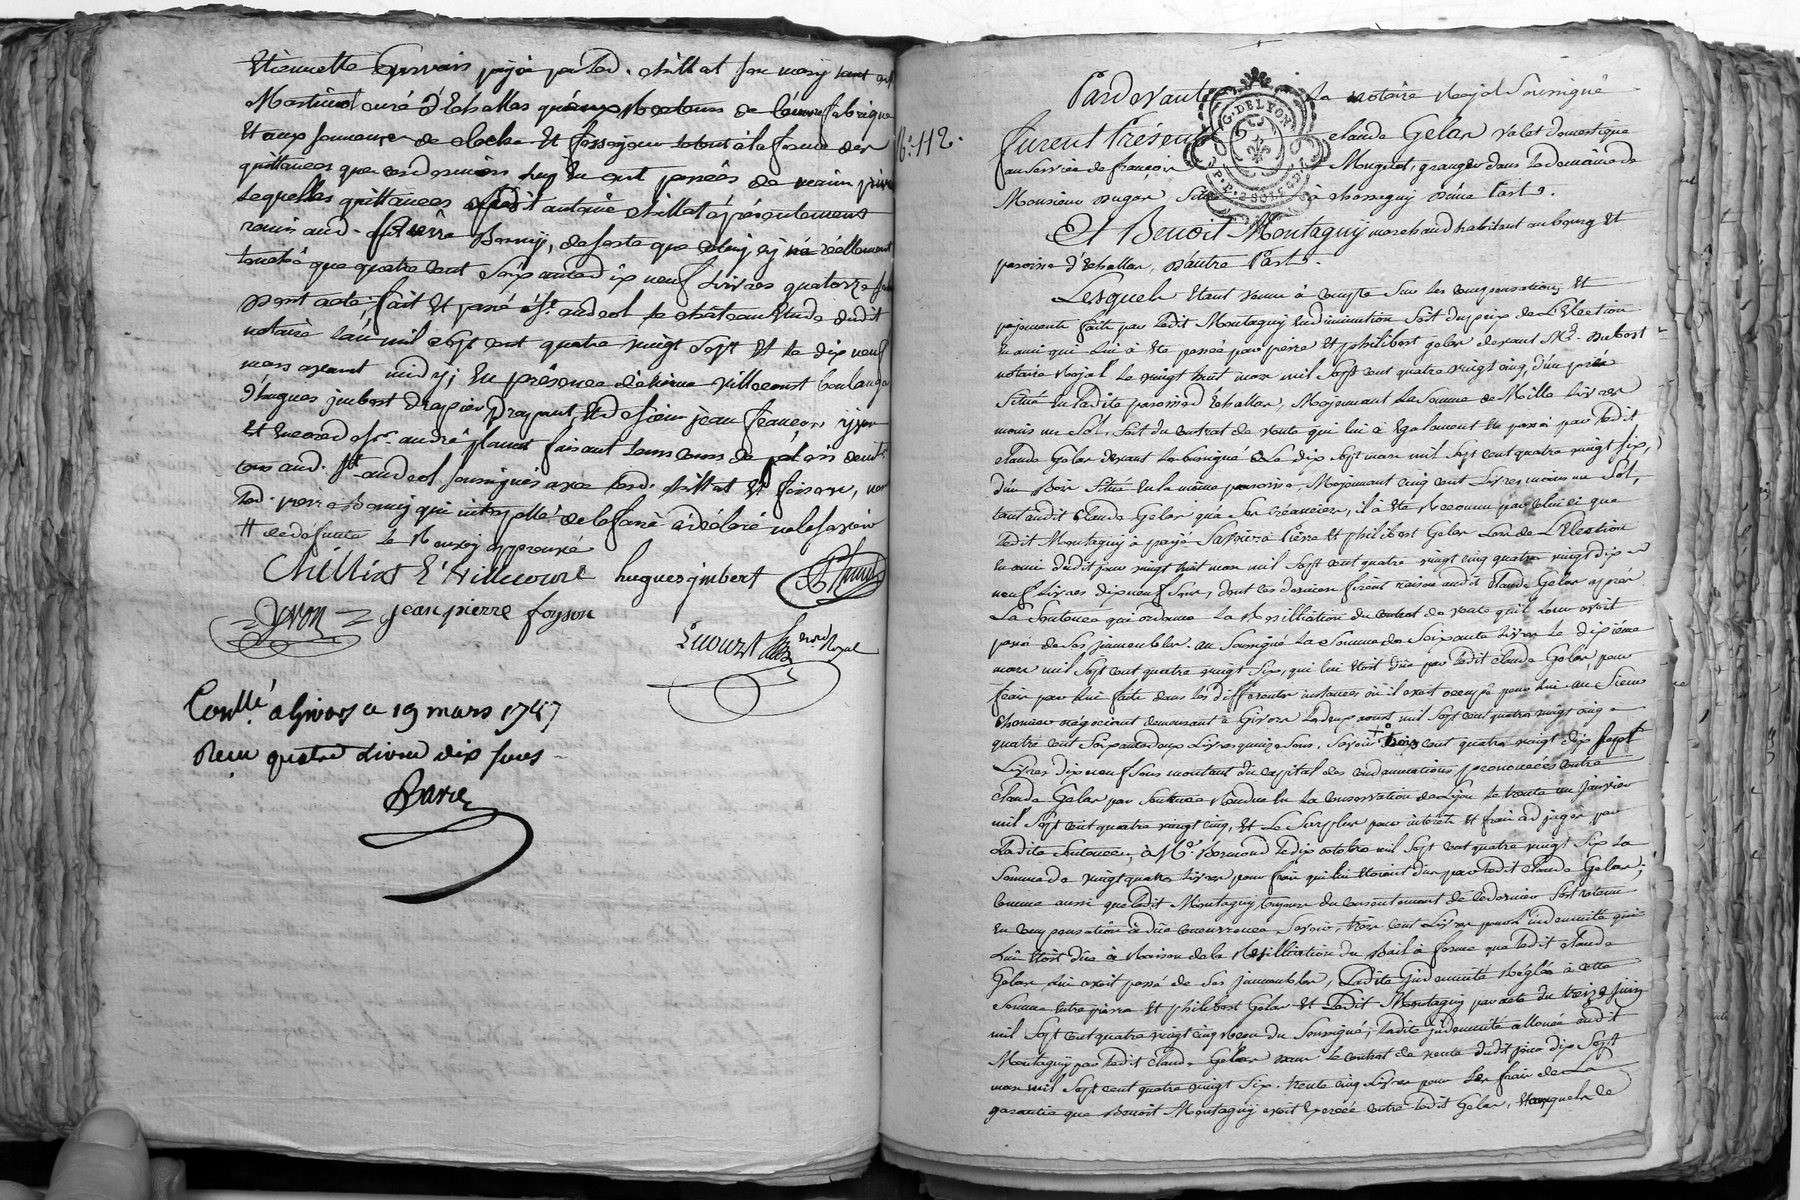 Etiennette Gervais payé par led. chillat son mary tant au sr
Martinot curé d'Echallas qu'aux Recteurs de l'œuvre fabrique
et aux sonneurs de cloche et fossoyeur le tout à la forme des
quittances que ces derniers luy en ont passées de main privée
lesquelles quittances ledit antoine chillat a présentement
remis aud. Pierre Bonny, de sorte que celuy cy n'a réellement
touché que quatre cent soixante dix neuf livres quatorze sous
Dont acte fait et passé à St. andeol le château étude dudit
notaire l'an mil sept cent quatre vingt sept et le dix neuf
mars avant midy, en présence d'étienne villecourt boulanger
d'hugues jmbert drapier drapant et de sieur jean françois yvon
et encore de sr. andré flamant
aud. St. andeol soussignés avec led. chillat et foison, non
led. pierre Bonny qui interpellé de le faire a déclaré ne le savoir
# de defunte le Renvoy approuvé
Chillat E Villecourt hugues jmbert
yvon jean pierre foyson
notre Royal
Conllé a Givors ce 19 mars 1787
Reçu quatre Livres dix sous
Barre
No. 112.
Pardevant Le notaire Royal Soussigné
G. DE LYON
furent Présents Claude Gelas valet domestique
au service de françois Mougnat, granger dans le domaine de
Monsieur Dugas situé à chassagny D'une Part.
Et Benoît Montagny marchand habitant au bourg et
paroisse d'Echallas, D'autre Part.
Lesquels étant venu à compte sur les compensations et
payements faits par ledit Montagny en diminution soit du prix de l'Election
en ami qui lui a été passée par pierre et philibert gelas devant Me. Dubost
notaire Royal le vingt huit mars mil sept cent quatre vingt cinq, d'un pré
situé en ladite paroisse d'Echallas, Moyennant La somme de Mille Livres
moins un Sol, soit du contrat de vente qui lui a également été passé par ledit
claude Gelas devant le soussigné Le dix sept mars mil sept cent quatre vingt six,
d'un Bois situé en la même paroisse, Moyennant cinq cent Livres moins un Sol,
tant audit Claude Gelas qu'a ses créanciers, il a été Reconnu par celui ci que
ledit Montagny a payé Savoir à Pierre et philibert Gelas Lors de L'Election
en ami dudit jour vingt huit mars mil sept cent quatre vingt cinq quatre vingt dix
neuf Livres dix neuf sous, dont ces derniers firent raison audit Claude Gelas après
La Sentence qui ordonna La Résilliation du contrat de vente qu'il leur avoit
passé de ses jmmeubles. au Soussigné La Somme de Soixante Livres le dixième
mars mil sept cent quatre vingt six, qui lui étoit due par ledit Claude Gelas, pour
frais par lui faits dans les différentes instances où il avoit occupé pour lui. au Sieur
négociant demeurant à Givors le deux aoust mil sept cent quatre vingt cinq
quatre cent soixante deux Livres quinze sous, savoir trois cent quatre vingt dix sept
Livres dix neuf sous montant du capital des condamnations prononcées contre
Claude Gelas par Sentence rendue en La conservation de Lyon le trente un janvier
mil sept cent quatre vingt cinq, et Le Surplus pour interets et frais adjugés par
Ladite Sentence, à Me. Bermond le dix octobre mil sept cent quatre vingt six La
Somme de vingt quatre Livres pour frais qui lui étoient dus par ledit Claude Gelas;
Comme aussi que ledit Montagny toujours du consentement de ce dernier s'est retenu
en compensation à due concurrence Savoir, trois cent Livres pour l'indemnité qui
Lui étoit due à Raison de la Résilliation du Bail à ferme que ledit Claude
Gelas lui avoit passé de ses jmmeubles, Ladite jndemnité réglée à cette
Somme entre pierre et philibert Gelas et Ledit Montagny par acte du treize juin
mil sept cent quatre vingt cinq Recu du Soussigné; ladite jndemnité allouée audit
Montagny par ledit Claude Gelas dans le contrat de vente dudit jour dix sept
mars mil sept cent quatre vingt six. trente cinq Livres pour les frais de La
garantie que Benoît Montagny avoit exercée contre ledit Gelas, et auxquels Le